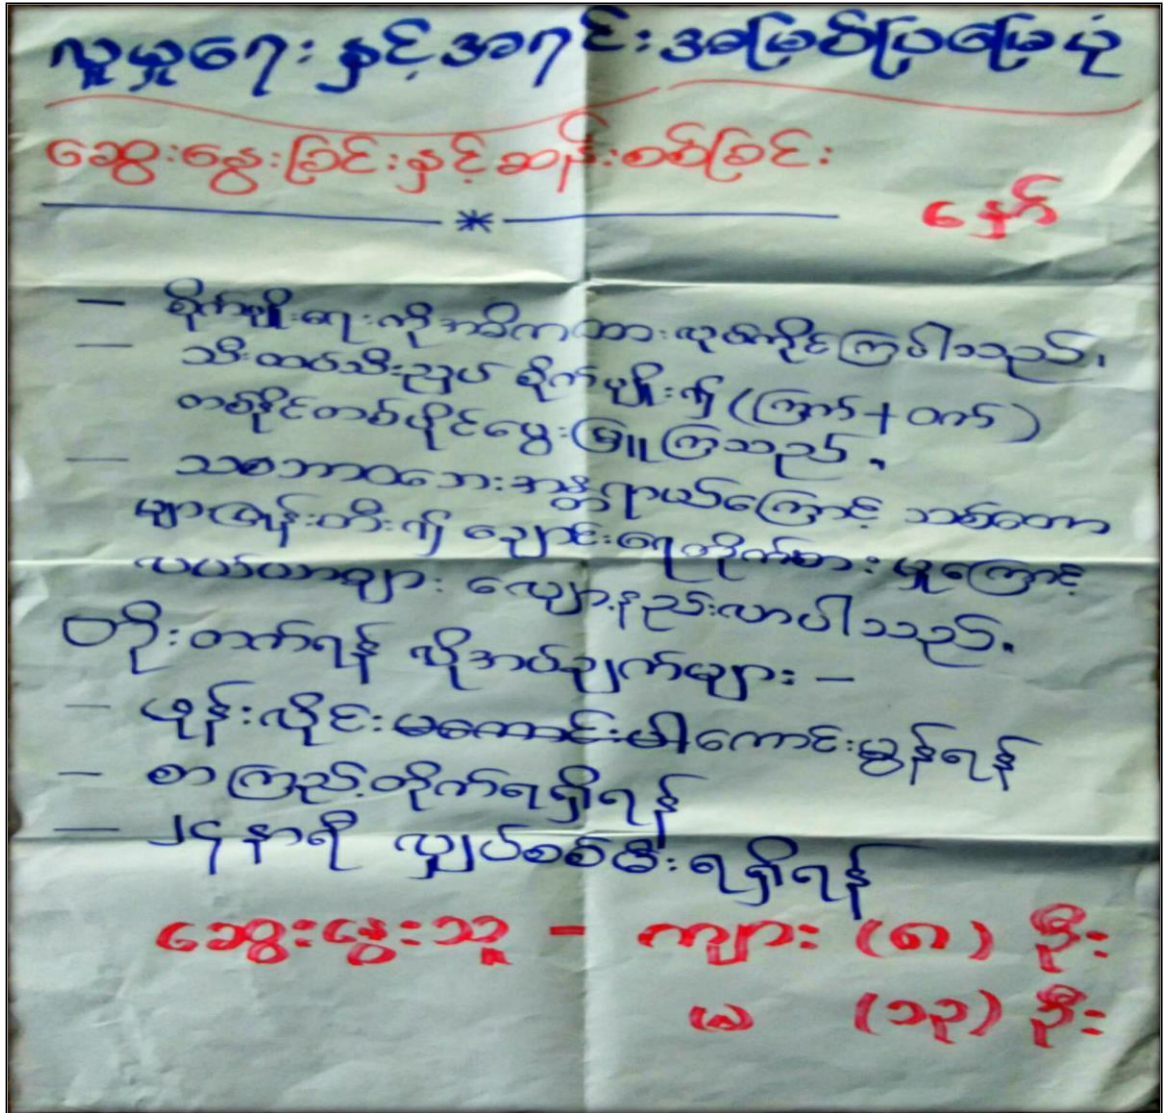 လူမှုရေးနှင့်အရင်းအမြစ်ပြမြေပုံ
ဆွေးနွေးခြင်းနှင့်ဆန်းစစ်ခြင်း
နှော်
- စိုက်ပျိုးရေးကိုအဓိကထားလုပ်ကိုင်ကြပါသည်။
- သီးထပ်သီးညှပ် စိုက်ပျိုး၍ (ကြက် + ဝက်)
တစ်နိုင်တစ်ပိုင်မွေးမြူကြသည်။
- သဘာဝဘေးအန္တရာယ်ကြောင့် သစ်တော
များပြုန်းတီး၍ ချောင်းရေတိုက်စားမှုကြောင့်
လယ်ယာများ လျော့နည်းလာပါသည်။
တိုးတက်ရန် လိုအပ်ချက်များ -
- ဖုန်းလိုင်းမကောင်းပါကောင်းမွန်ရန်
- စာကြည့်တိုက်ရရှိရန်
- ၂၄ နာရီ လျှပ်စစ်မီးရရှိရန်
ဆွေးနွေးသူ - ကျား (၈) ဦး
မ (၁၃) ဦး